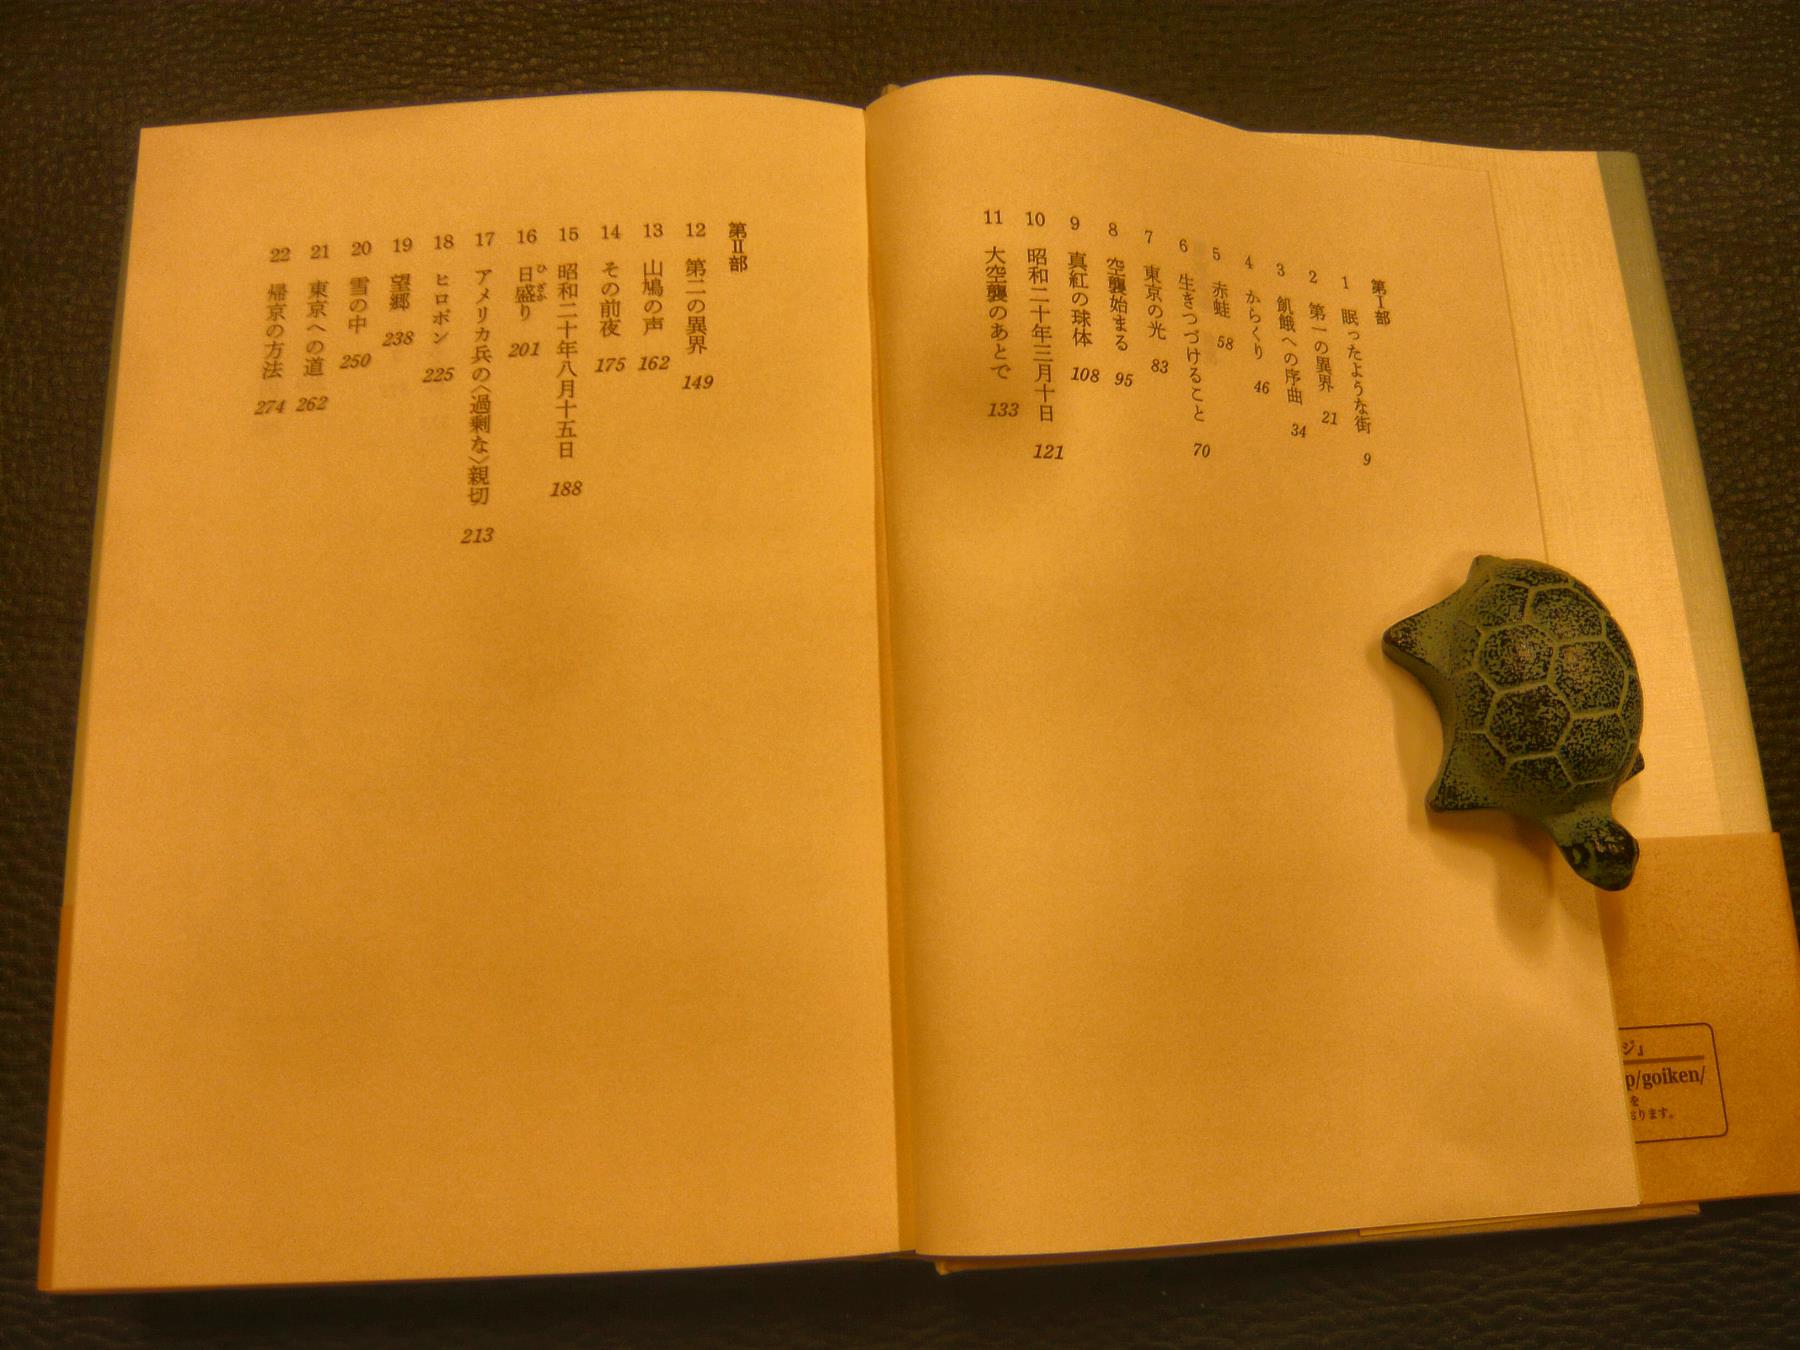 第Ⅰ部
1 眠ったような街 9
2 第一の異界 21
3 飢餓への序曲 34
4 からくり 46
5 赤蛙 58
6 生きつづけること 70
7 東京の光 83
8 空襲始まる 95
9 真紅の球体 108
10 昭和二十年三月十日 121
11 大空襲のあとで 133
第Ⅱ部
12 第二の異界 149
13 山鳩の声 162
14 その前夜 175
15 昭和二十年八月十五日 188
16 日盛り 201
ひざか
17 アメリカ兵の〈過剰な〉親切 213
18 ヒロポン 225
19 望郷 238
20 雪の中 250
21 東京への道 262
22 帰京の方法 274
ジ』
p/goiken/
を
おります。